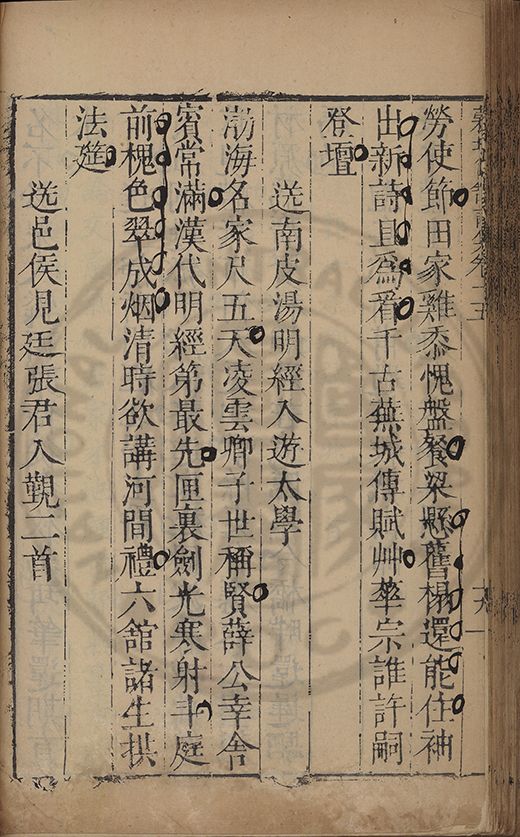 勞使節田家雞黍愧盤餐梁懸舊榻還能住袖
出新詩且為看千古蕪城傳賦艸華宗誰許嗣
登壇
送南皮湯明經入遊太學
渤海名家尺五天凌雲卿子世稱賢薛公幸舍
賓常滿漢代明經第最先匣裏劍光寒射斗庭
前槐色翠成烟清時欲講河間禮六舘諸生拱
法筵
送邑侯見廷張君入覲二首